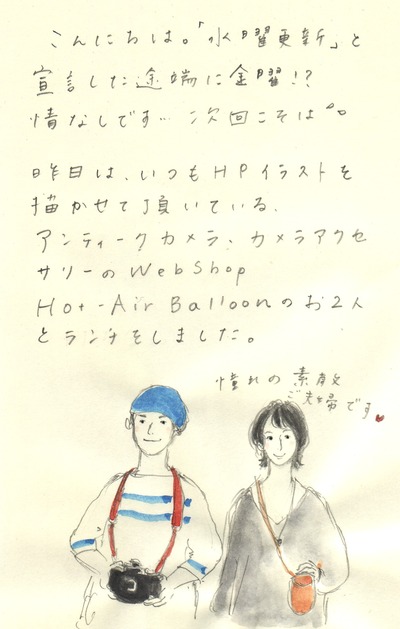 こんにちは。「水曜更新」と
宣言した途端に金曜!?
情なしです… 次回こそは。。
昨日は、いつもHPイラストを
描かせて頂いている、
アンティークカメラ、カメラアクセ
サリーのWebShop
Hot-Air Balloonのお2人
とランチをしました。
憧れの素敵
ご夫婦です